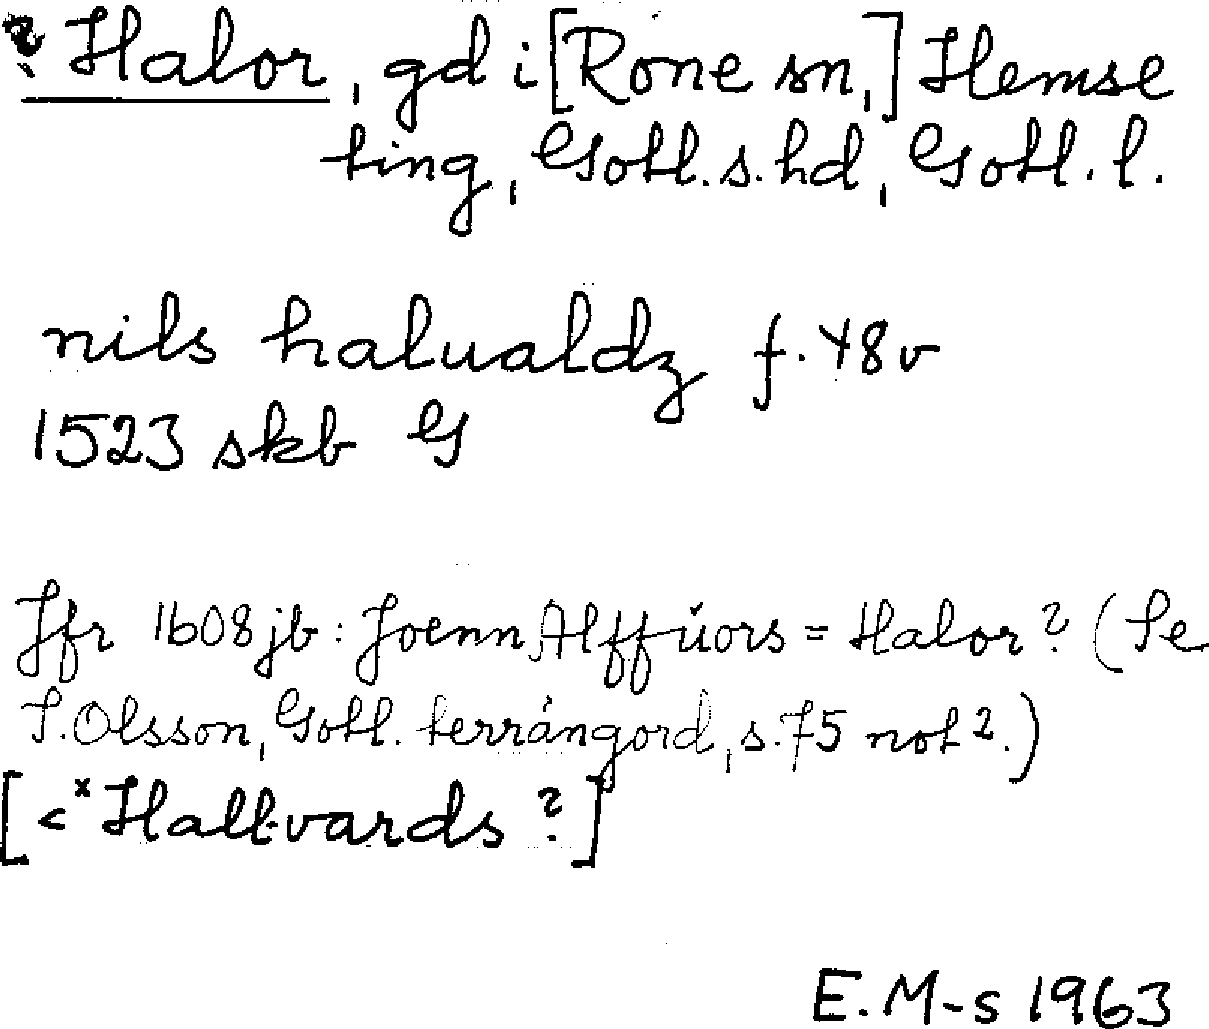 ? Halor, gd i [Rone sn,] Hemse
ting, Gotl. s. hd, Gotl. l.
nils halualdz f. 48v
1523 skb G
Jfr 1608 jb: Joenn Alffŭors = Halor? (Se
I. Olsson, Gotl. terrängord, s. 75 not 2.)
[<*Hallvards ?]
E. M-s 1963